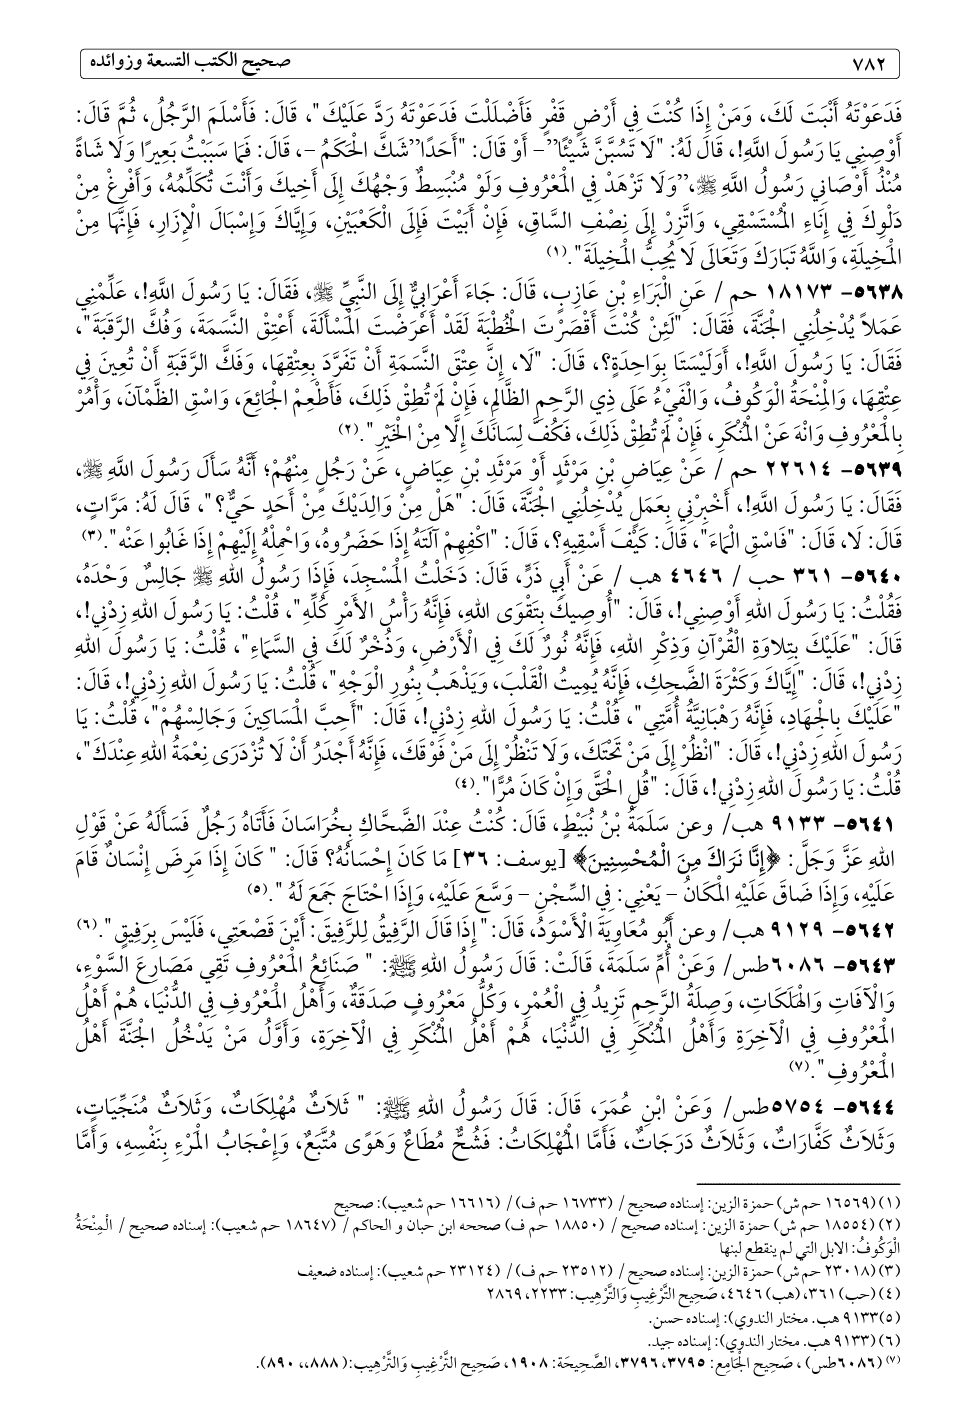 ٧٨٢ صحيح الكتب التسعة وزوائده
فَدَعَوْتَهُ أَنْبَتَ لَكَ، وَمَنْ إِذَا كُنْتَ فِي أَرْضٍ قَفْرٍ فَأَضْلَلْتَ فَدَعَوْتَهُ رَدَّ عَلَيْكَ"، قَالَ: فَأَسْلَمَ الرَّجُلُ، ثُمَّ قَالَ:
أَوْصِنِي يَا رَسُولَ اللَّهِ!، قَالَ لَهُ: "لَا تَسُبَّنَّ شَيْئًا"– أَوْ قَالَ: "أَحَدًا"شَكَّ الْحَكَمُ –، قَالَ: فَمَا سَبَبْتُ بَعِيرًا وَلَا شَاةً
مُنْذُ أَوْصَانِي رَسُولُ اللَّهِ ﷺ،"وَلَا تَزْهَدْ فِي الْمَعْرُوفِ وَلَوْ مُنْبَسِطٌ وَجْهُكَ إِلَى أَخِيكَ وَأَنْتَ تُكَلِّمُهُ، وَأَفْرِغْ مِنْ
دَلْوِكَ فِي إِنَاءِ الْمُسْتَسْقِي، وَاتَّزِرْ إِلَى نِصْفِ السَّاقِ، فَإِنْ أَبَيْتَ فَإِلَى الْكَعْبَيْنِ، وَإِيَّاكَ وَإِسْبَالَ الْإِزَارِ، فَإِنَّهَا مِنْ
الْمَخِيلَةِ، وَاللَّهُ تَبَارَكَ وَتَعَالَى لَا يُحِبُّ الْمَخِيلَةَ".(١)
٥٦٣٨- ١٨١٧٣ حم / عَنِ الْبَرَاءِ بْنِ عَازِبٍ، قَالَ: جَاءَ أَعْرَابِيٌّ إِلَى النَّبِيِّ ﷺ، فَقَالَ: يَا رَسُولَ اللَّهِ!، عَلِّمْنِي
عَمَلاً يُدْخِلُنِي الْجَنَّةَ، فَقَالَ: "لَئِنْ كُنْتَ أَقْصَرْتَ الْخُطْبَةَ لَقَدْ أَعْرَضْتَ الْمَسْأَلَةَ، أَعْتِقْ النَّسَمَةَ، وَفُكَّ الرَّقَبَةَ"،
فَقَالَ: يَا رَسُولَ اللَّهِ!، أَوَلَيْسَتَا بِوَاحِدَةٍ؟، قَالَ: "لَا، إِنَّ عِتْقَ النَّسَمَةِ أَنْ تَفَرَّدَ بِعِتْقِهَا، وَفَكَّ الرَّقَبَةِ أَنْ تُعِينَ فِي
عِتْقِهَا، وَالْمِنْحَةُ الْوَكُوفُ، وَالْفَيْءُ عَلَى ذِي الرَّحِمِ الظَّالِمِ، فَإِنْ لَمْ تُطِقْ ذَلِكَ، فَأَطْعِمْ الْجَائِعَ، وَاسْقِ الظَّمْآنَ، وَأْمُرْ
بِالْمَعْرُوفِ وَانْهَ عَنْ الْمُنْكَرِ، فَإِنْ لَمْ تُطِقْ ذَلِكَ، فَكُفَّ لِسَانَكَ إِلَّا مِنْ الْخَيْرِ".(٢)
٥٦٣٩- ٢٢٦١٤ حم / عَنْ عِيَاضِ بْنِ مَرْثَدٍ أَوْ مَرْثَدِ بْنِ عِيَاضٍ، عَنْ رَجُلٍ مِنْهُمْ؛ أَنَّهُ سَأَلَ رَسُولَ اللَّهِ ﷺ،
فَقَالَ: يَا رَسُولَ اللَّهِ!، أَخْبِرْنِي بِعَمَلٍ يُدْخِلُنِي الْجَنَّةَ، قَالَ: "هَلْ مِنْ وَالِدَيْكَ مِنْ أَحَدٍ حَيٌّ؟"، قَالَ لَهُ: مَرَّاتٍ،
قَالَ: لَا، قَالَ: "فَاسْقِ الْمَاءَ"، قَالَ: كَيْفَ أَسْقِيهِ؟، قَالَ: "اكْفِهِمْ آلَتَهُ إِذَا حَضَرُوهُ، وَاحْمِلْهُ إِلَيْهِمْ إِذَا غَابُوا عَنْه".(٣)
٥٦٤٠- ٣٦١ حب / ٤٦٤٦ هب / عَنْ أَبِي ذَرٍّ، قَالَ: دَخَلْتُ الْمَسْجِدَ، فَإِذَا رَسُولُ اللهِ ﷺ جَالِسٌ وَحْدَهُ،
فَقُلْتُ: يَا رَسُولَ اللهِ أَوْصِنِي!، قَالَ: "أُوصِيكَ بِتَقْوَى اللهِ، فَإِنَّهُ رَأْسُ الأَمْرِ كُلِّهِ"، قُلْتُ: يَا رَسُولَ اللهِ زِدْنِي!،
قَالَ: "عَلَيْكَ بِتِلاوَةِ الْقُرْآنِ وَذِكْرِ اللهِ، فَإِنَّهُ نُورٌ لَكَ فِي الْأَرْضِ، وَذُخْرٌ لَكَ فِي السَّمَاءِ"، قُلْتُ: يَا رَسُولَ اللهِ
زِدْنِي!، قَالَ: "إِيَّاكَ وَكَثْرَةَ الضَّحِكِ، فَإِنَّهُ يُمِيتُ الْقَلْبَ، وَيَذْهَبُ بِنُورِ الْوَجْهِ"، قُلْتُ: يَا رَسُولَ اللهِ زِدْنِي!، قَالَ:
"عَلَيْكَ بِالْجِهَادِ، فَإِنَّهُ رَهْبَانِيَّةُ أُمَّتِي"، قُلْتُ: يَا رَسُولَ اللهِ زِدْنِي!، قَالَ: "أَحِبَّ الْمَسَاكِينَ وَجَالِسْهُمْ"، قُلْتُ: يَا
رَسُولَ اللهِ زِدْنِي!، قَالَ: "انْظُرْ إِلَى مَنْ تَحْتَكَ، وَلَا تَنْظُرْ إِلَى مَنْ فَوْقَكَ، فَإِنَّهُ أَجْدَرُ أَنْ لَا تُزْدَرَى نِعْمَةُ اللهِ عِنْدَكَ"،
قُلْتُ: يَا رَسُولَ اللهِ زِدْنِي!، قَالَ: "قُلِ الْحَقَّ وَإِنْ كَانَ مُرًّا".(٤)
٥٦٤١- ٩١٣٣ هب/ وعن سَلَمَةُ بْنُ نُبَيْطٍ، قَالَ: كُنْتُ عِنْدَ الضَّحَّاكِ بِخُرَاسَانَ فَأَتَاهُ رَجُلٌ فَسَأَلَهُ عَنْ قَوْلِ
اللهِ عَزَّ وَجَلَّ: ﴿إِنَّا نَرَاكَ مِنَ الْمُحْسِنِينَ﴾ [يوسف: ٣٦] مَا كَانَ إِحْسَانُهُ؟ قَالَ: " كَانَ إِذَا مَرِضَ إِنْسَانٌ قَامَ
عَلَيْهِ، وَإِذَا ضَاقَ عَلَيْهِ الْمَكَانُ – يَعْنِي: فِي السِّجْنِ – وَسَّعَ عَلَيْهِ، وَإِذَا احْتَاجَ جَمَعَ لَهُ ".(٥)
٥٦٤٢- ٩١٢٩ هب/ وعن أَبُو مُعَاوِيَةَ الْأَسْوَدُ، قَالَ: " إِذَا قَالَ الرَّفِيقُ لِلرَّفِيقَ: أَيْنَ قَصْعَتِي، فَلَيْسَ بِرَفِيقٍ ".(٦)
٥٦٤٣- ٦٠٨٦طس/ وَعَنْ أُمِّ سَلَمَةَ، قَالَتْ: قَالَ رَسُولُ اللهِ ﷺ: " صَنَائِعُ الْمَعْرُوفِ تَقِي مَصَارِعَ السَّوْءِ،
وَالْآفَاتِ وَالْهَلَكَاتِ، وَصِلَةُ الرَّحِمِ تَزِيدُ فِي الْعُمْرِ، وَكُلُّ مَعْرُوفٍ صَدَقَةٌ، وَأَهْلُ الْمَعْرُوفِ فِي الدُّنْيَا، هُمْ أَهْلُ
الْمَعْرُوفِ فِي الْآخِرَةِ وَأَهْلُ الْمُنْكَرِ فِي الدُّنْيَا، هُمْ أَهْلُ الْمُنْكَرِ فِي الْآخِرَةِ، وَأَوَّلُ مَنْ يَدْخُلُ الْجَنَّةَ أَهْلُ
الْمَعْرُوفِ ".(٧)
٥٦٤٤- ٥٧٥٤طس/ وَعَنْ ابْنِ عُمَرَ، قَالَ: قَالَ رَسُولُ اللهِ ﷺ: " ثَلَاثٌ مُهْلِكَاتٌ، وَثَلَاثٌ مُنَجِّيَاتٍ،
وَثَلَاثٌ كَفَّارَاتٌ، وَثَلَاثٌ دَرَجَاتٌ، فَأَمَّا الْمُهْلِكَاتُ: فَشُحٌّ مُطَاعٌ وَهَوًى مُتَّبَعٌ، وَإِعْجَابُ الْمَرْءِ بِنَفْسِهِ، وَأَمَّا
(١) (١٦٥٦٩ حم ش) حمزة الزين: إسناده صحيح/ (١٦٧٣٣ حم ف)/ (١٦٦١٦ حم شعيب): صحيح
(٢) (١٨٥٥٤ حم ش) حمزة الزين: إسناده صحيح / (١٨٨٥٠ حم ف) صححه ابن حبان و الحاكم / (١٨٦٤٧ حم شعيب): إسناده صحيح / الْمِنْحَةُ
الْوَكُوفُ: الابل التي لم ينقطع لبنها
(٣) (٢٣٠١٨ حم ش) حمزة الزين: إسناده صحيح / (٢٣٥١٢ حم ف)/ (٢٣١٢٤ حم شعيب): إسناده ضعيف
(٤) (حب) ٣٦١، (هب) ٤٦٤٦، صَحِيح التَّرْغِيبِ وَالتَّرْهِيب: ٢٢٣٣، ٢٨٦٩
(٥) (٩١٣٣ هب. مختار الندوي): إسناده حسن.
(٦) (٩١٣٣ هب. مختار الندوي): إسناده جيد.
(٧) (٦٠٨٦طس) ، صَحِيح الْجَامِع: ٣٧٩٥، ٣٧٩٦، الصَّحِيحَة: ١٩٠٨، صَحِيح التَّرْغِيبِ وَالتَّرْهِيب: ( ٨٨٨،، ٨٩٠).